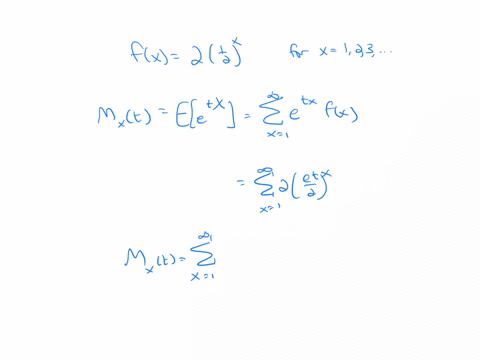 f(x) = 2(1/2)^x for x = 1,2,3,...
M_x(t) = E[e^{tX}] = ∑_{x=1}^{∞} e^{tx} f(x)
= ∑_{x=1}^{∞} 2(e^t/2)^x
M_x(t) = ∑_{x=1}^{∞}